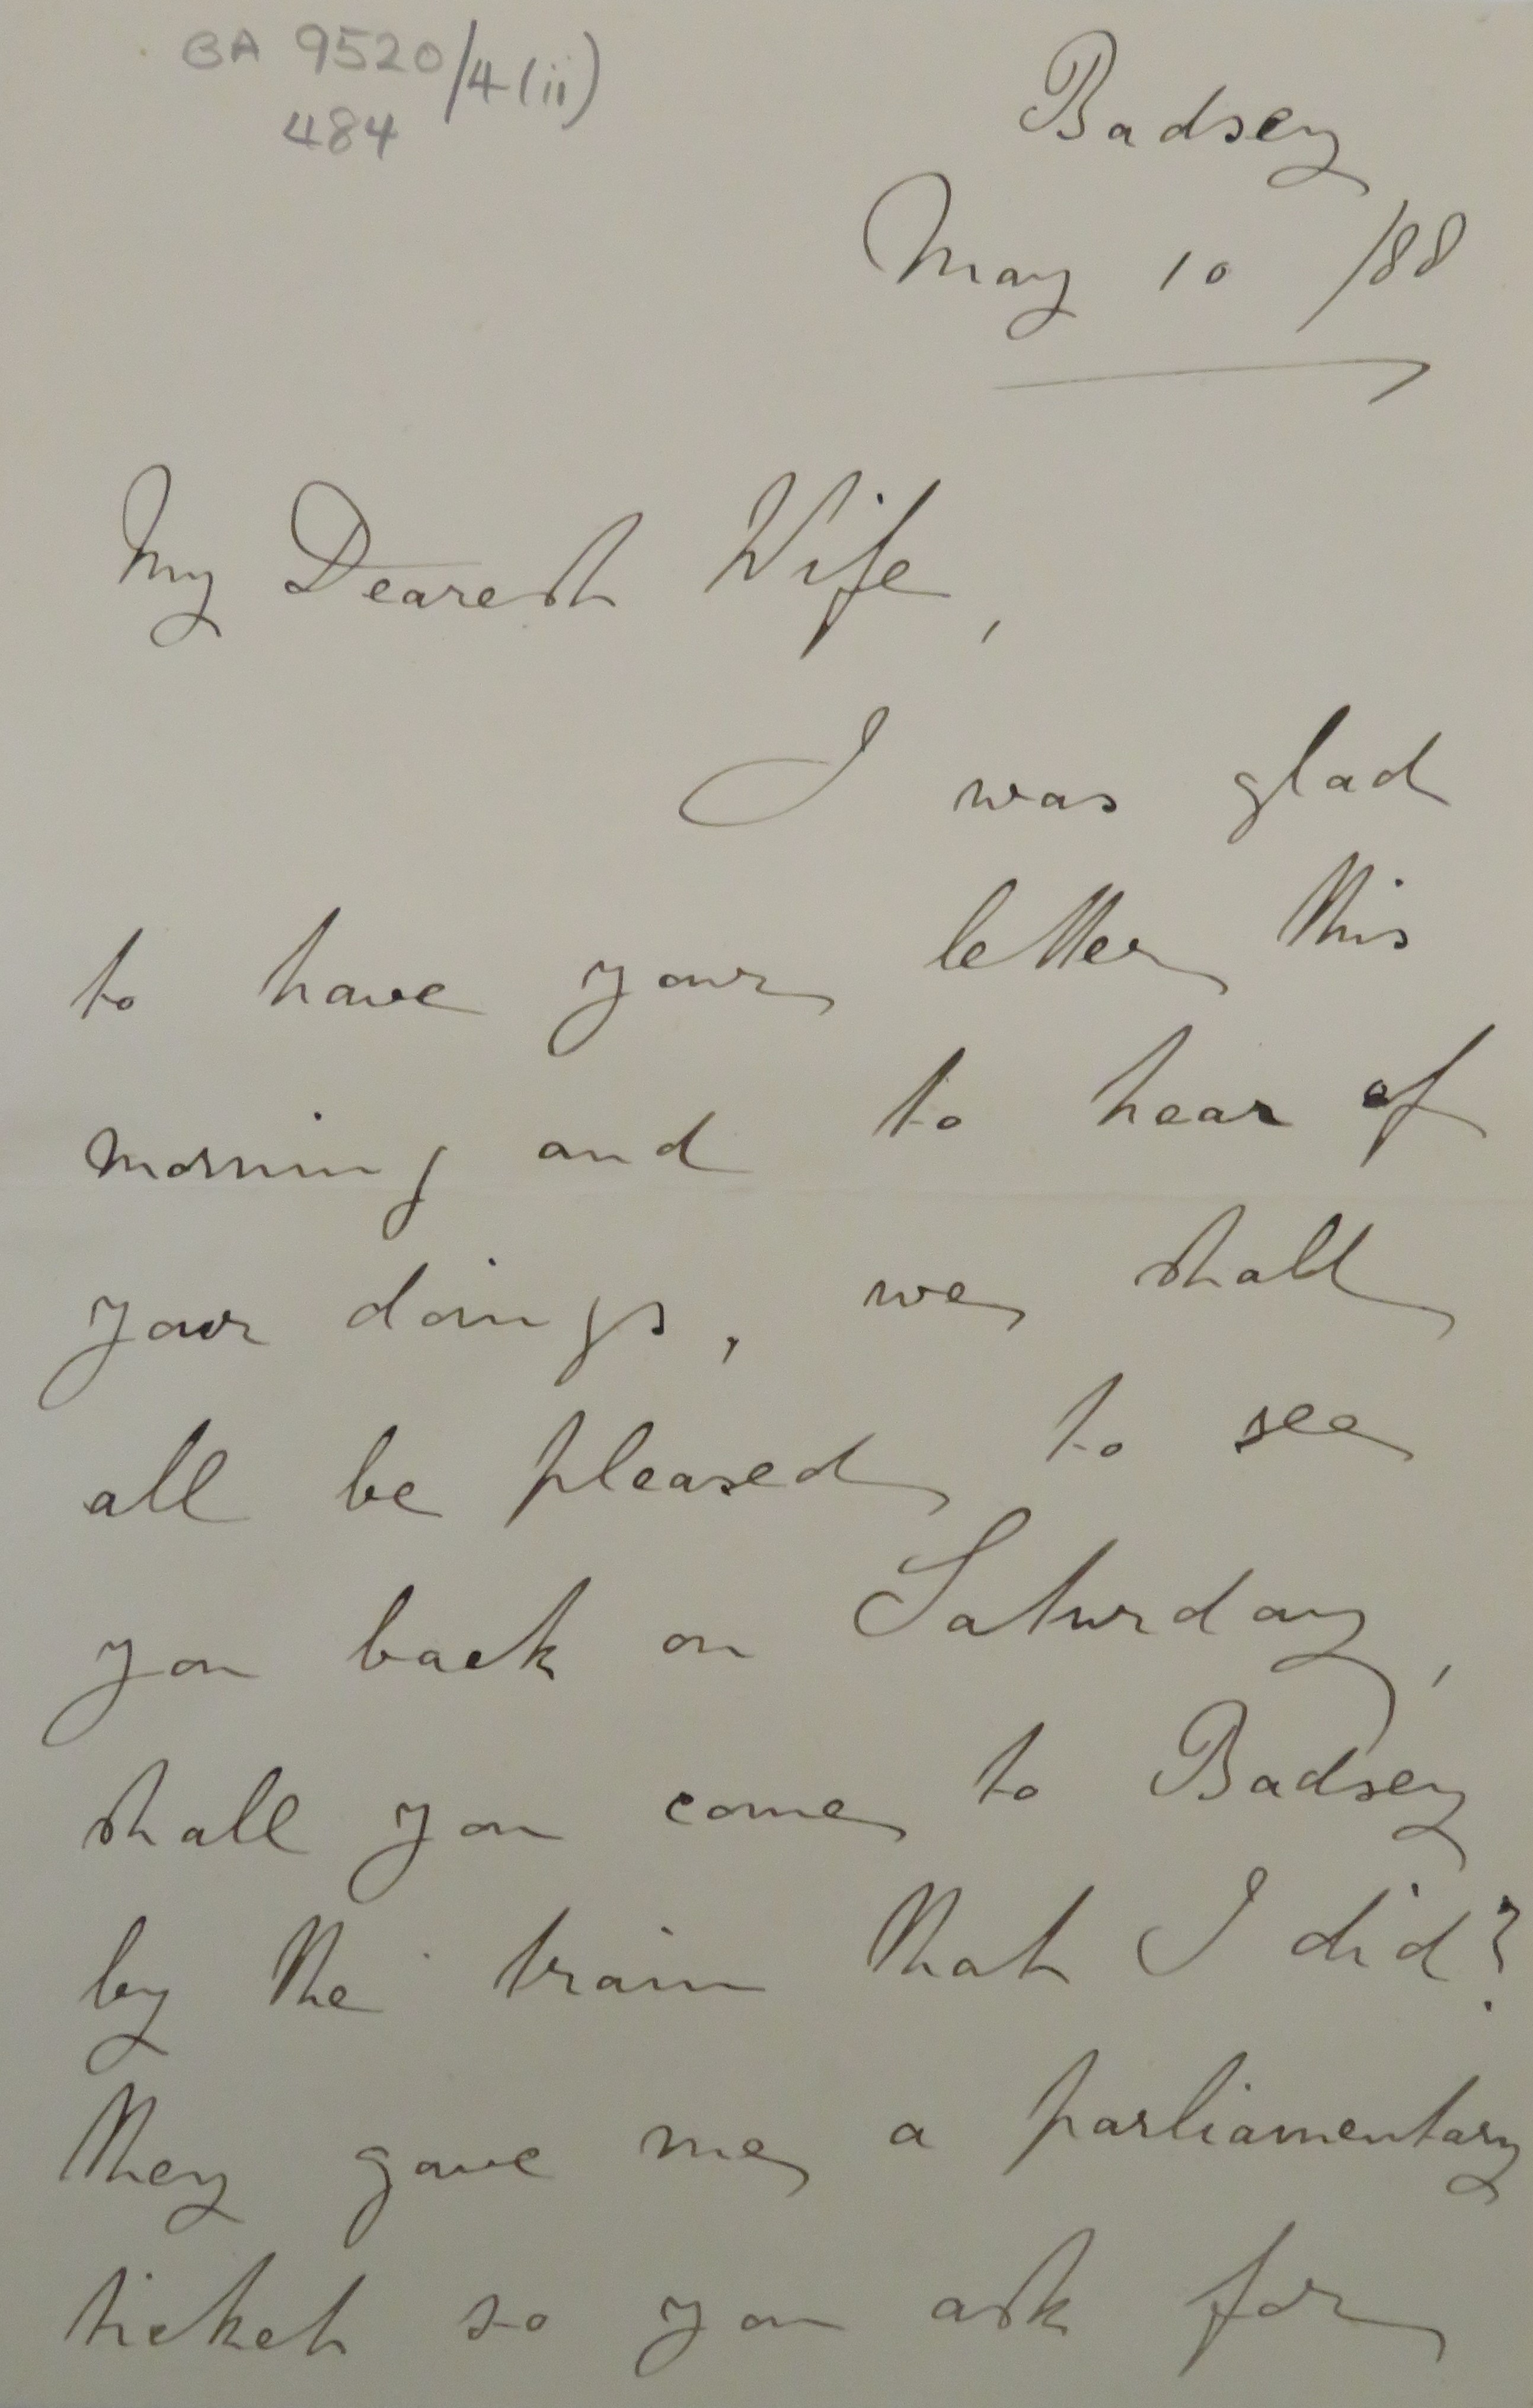 BA 9520/4(ii)
484
Badsey
May 10 /88
My Dearest Wife,
I was glad
to have your letter this
morning and to hear of
your doings, we shall
all be pleased to see
you back on Saturday,
shall you come to Badsey
by the train that I did?
They gave me a parliamentary
ticket so you ask for